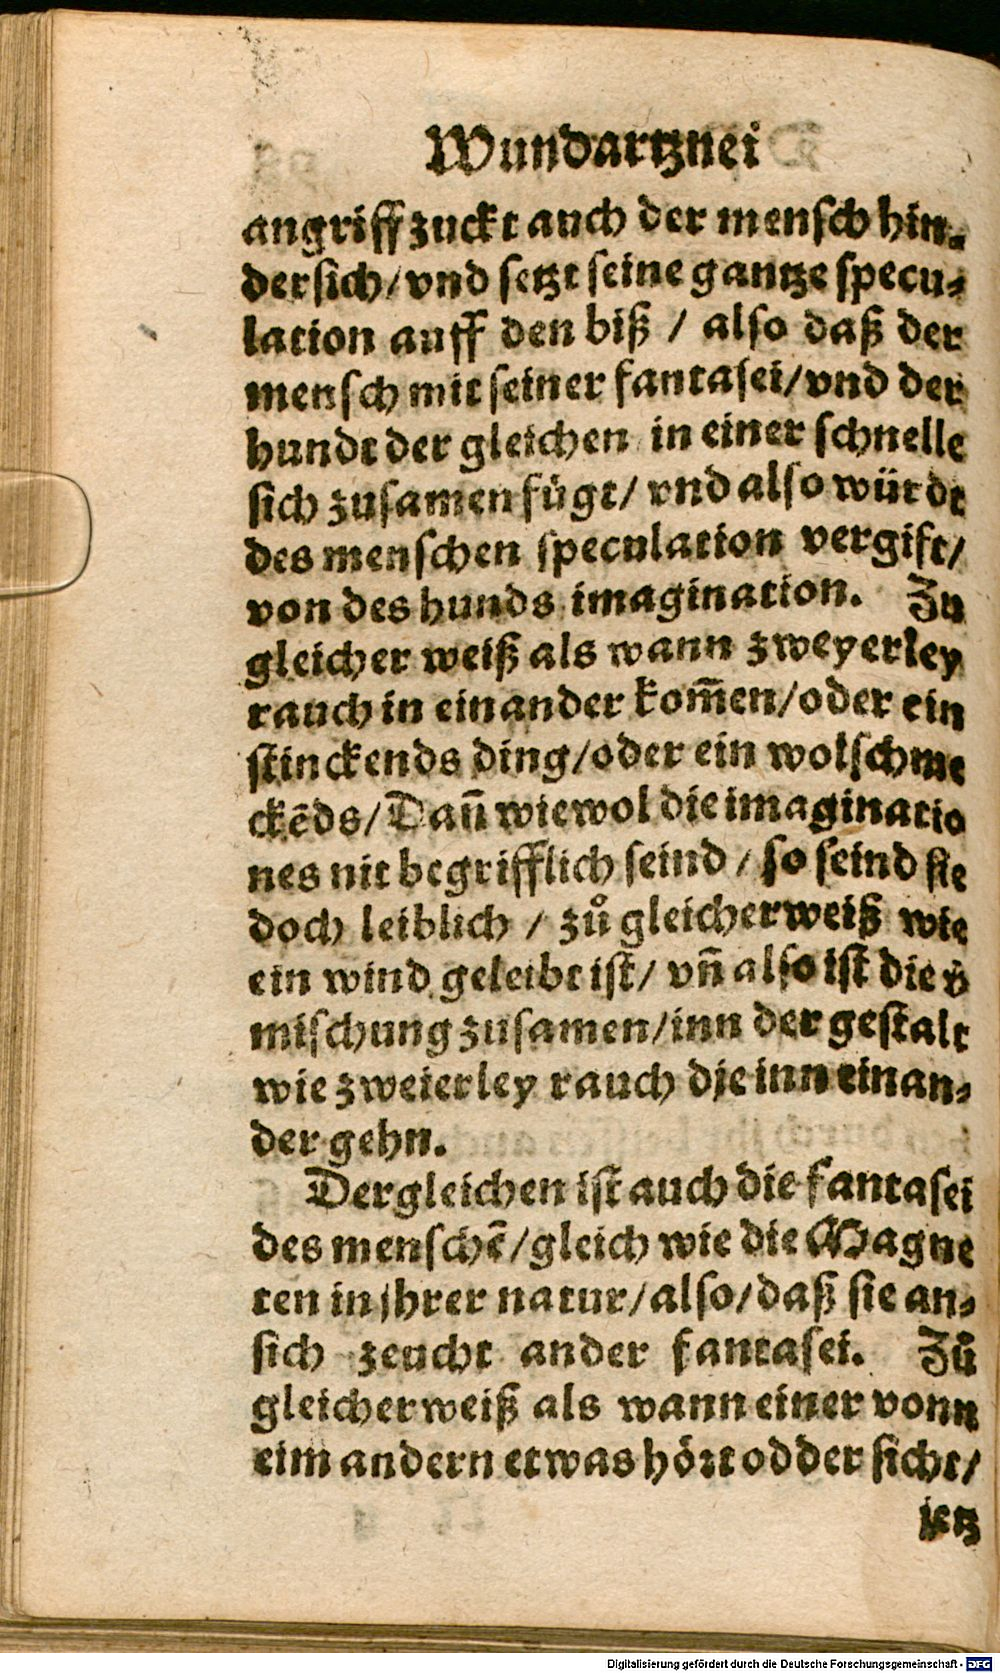 Wundartznei
angriff zuckt auch der mensch hin-
dersich/ vnd setzt seine gantze specu-
lation auff den biß / also daß der
mensch mit seiner fantasei/ vnd der
hundt der gleichen in einer schnelle
sich zusamen fügt/ vnd also würdt
des menschen speculation vergift/
von des hunds imagination. Zu
gleicher weiß als wann zweyerley
rauch in einander kom̄en/ oder ein
stinckends ding/ oder ein wolschme
ckēds/ Dan̄ wiewol die imaginatio
nes nit begrifflich seind / so seind sie
doch leiblich / zů gleicherweiß wie
ein wind geleibt ist/ vn̄ also ist die v̄
mischung zusamen/ inn der gestalt
wie zweierley rauch die inn einan-
der gehn.
Dergleichen ist auch die fantasei
des menschē/ gleich wie die Magne
ten in jhrer natur/ also/ daß sie an-
sich zeucht ander fantasei. Zů
gleicherweiß als wann einer vonn
eim andern etwas hört odder sicht/
jetz
Digitalisierung gefördert durch die Deutsche Forschungsgemeinschaft - DFG